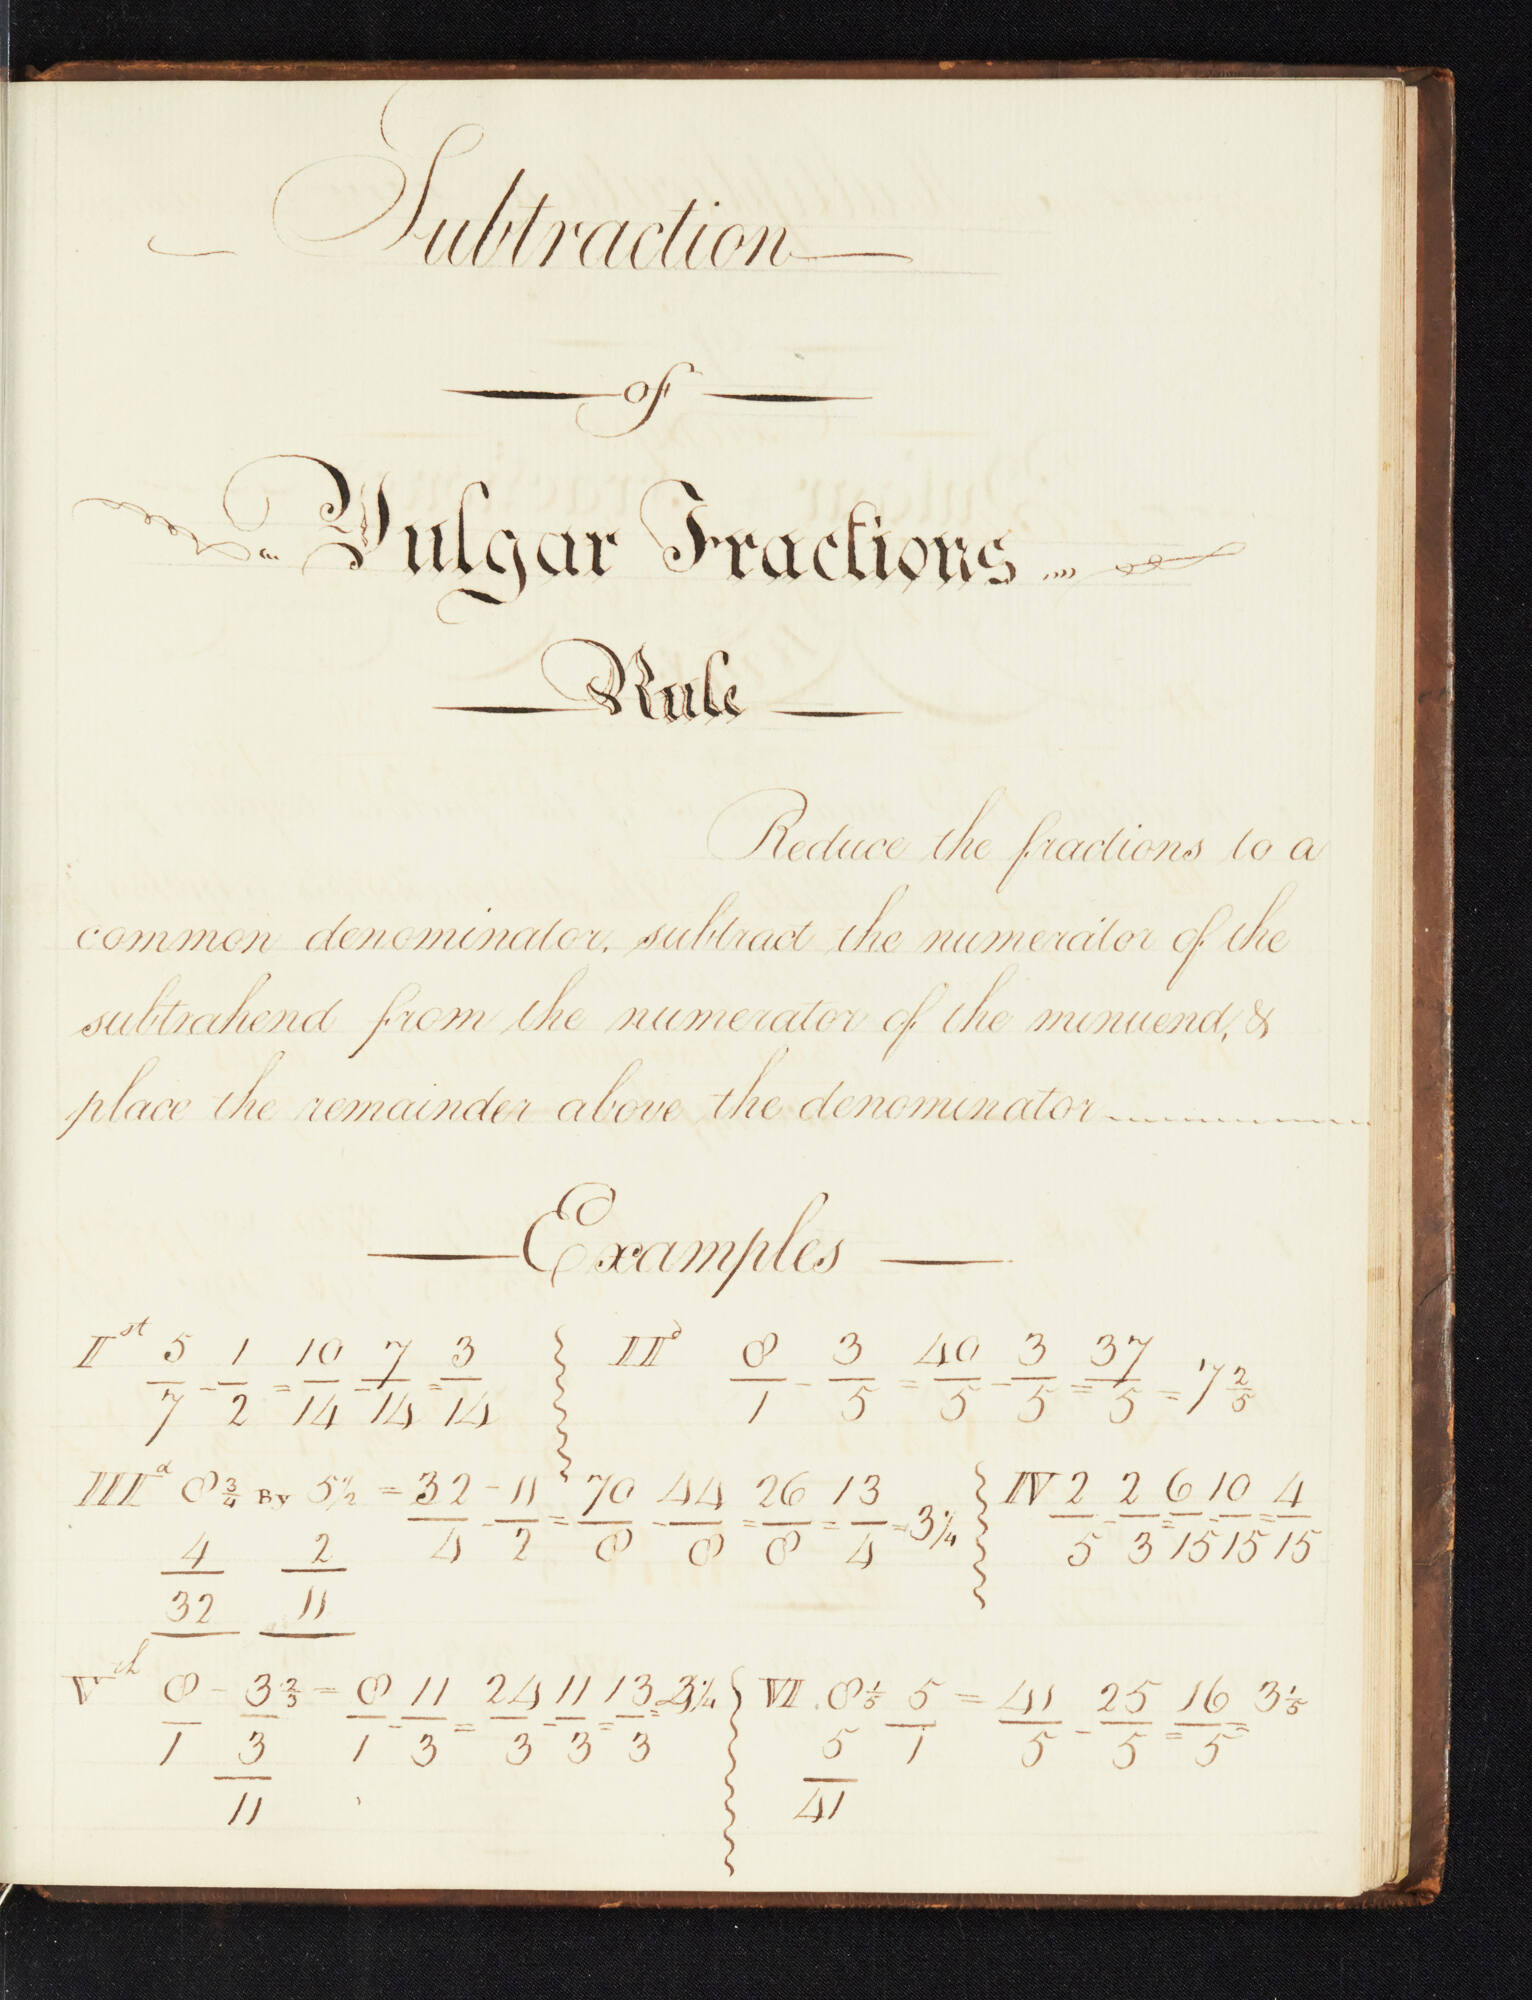 Subtraction
of
Vulgar Fractions
Rule
Reduce the fractions to a
common denominator, subtract the numerator of the
subtrahend from the numerator of the minuend, &
place the remainder above the denominator
Examples
I st 5/7 - 1/2 = 10/14 - 7/14 = 3/14
II d 8/1 - 3/5 = 40/5 - 3/5 = 37/5 = 7 2/5
III d 8 3/4 By 5 1/2 = 32/4 - 11/2 = 70/8 - 44/8 = 26/8 = 13/4 = 3 1/4
4 2
32 11
IV 2/5 - 2/3 = 6/15 - 10/15 = 4/15
V th 8/1 - 3 2/3 = 8/1 - 11/3 = 24/3 - 11/3 = 13/3 = 3 1/4
3
11
VI. 8 1/5 5/1 = 41/5 - 25/5 = 16/5 = 3 1/5
5
41